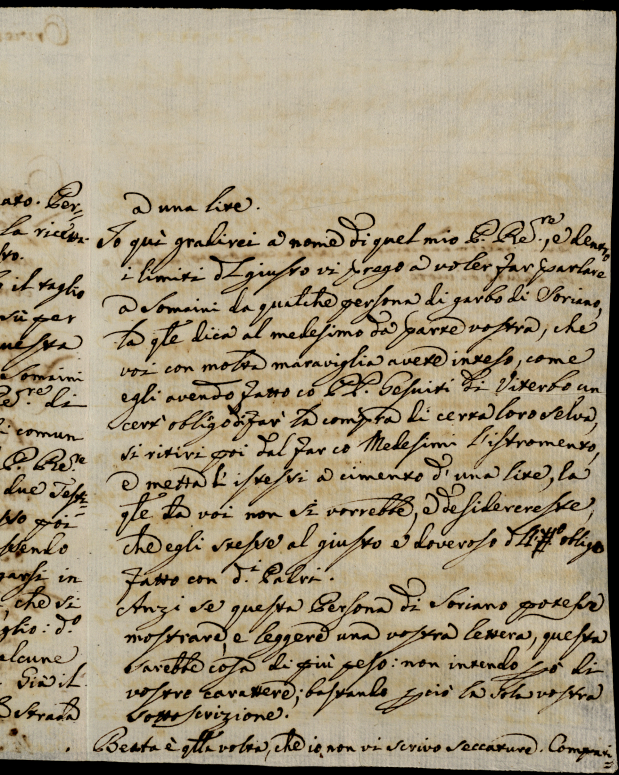 ato. Per=
la ricevu
tro.
il taglio
sù per
uesta
Somaini
Re.re di
i comun
P. Re.re
due Testi
sso poi
stendo
garsi in
, che si
glio: d.o
alcune
Già il
Strada
a una lite.
Io quì gradirei a nome di quel mio P. Re.re, e dentro
i limiti del giusto vi prego a voler far parlare
a Somaini da qualche persona di garbo di Soriano,
la qle dica al medesimo da parte vostra, che
voi con molta maraviglia avete inteso, come
egli avendo fatto co PP. Gesuiti di Viterbo un
cert' obligo di far la compra di certa loro selva,
si ritiri poi dal far co Medesimi l'istromento,
e metta l' istessi a cimento d' una lite, la
qle da voi non si vorrebbe, e desiderereste,
che egli stesse al giusto e doveroso obligo
fatto con d.i Padri.
Anzi se questa Persona di Soriano potesse
mostrare, e leggere una vostra lettera, questa
sarebbe cosa di più peso: non intendo pò di
vostro carattere; bastando pciò la sola vostra
sottoscrizione.
Beata è qlla volta, che io non vi scrivo seccature. Compati=